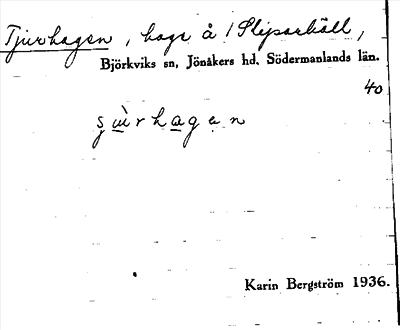 Tjurhagen, hage å /Slipsarhäll,
Björkviks sn, Jönåkers hd, Södermanlands län.
40
Karin Bergström 1936.